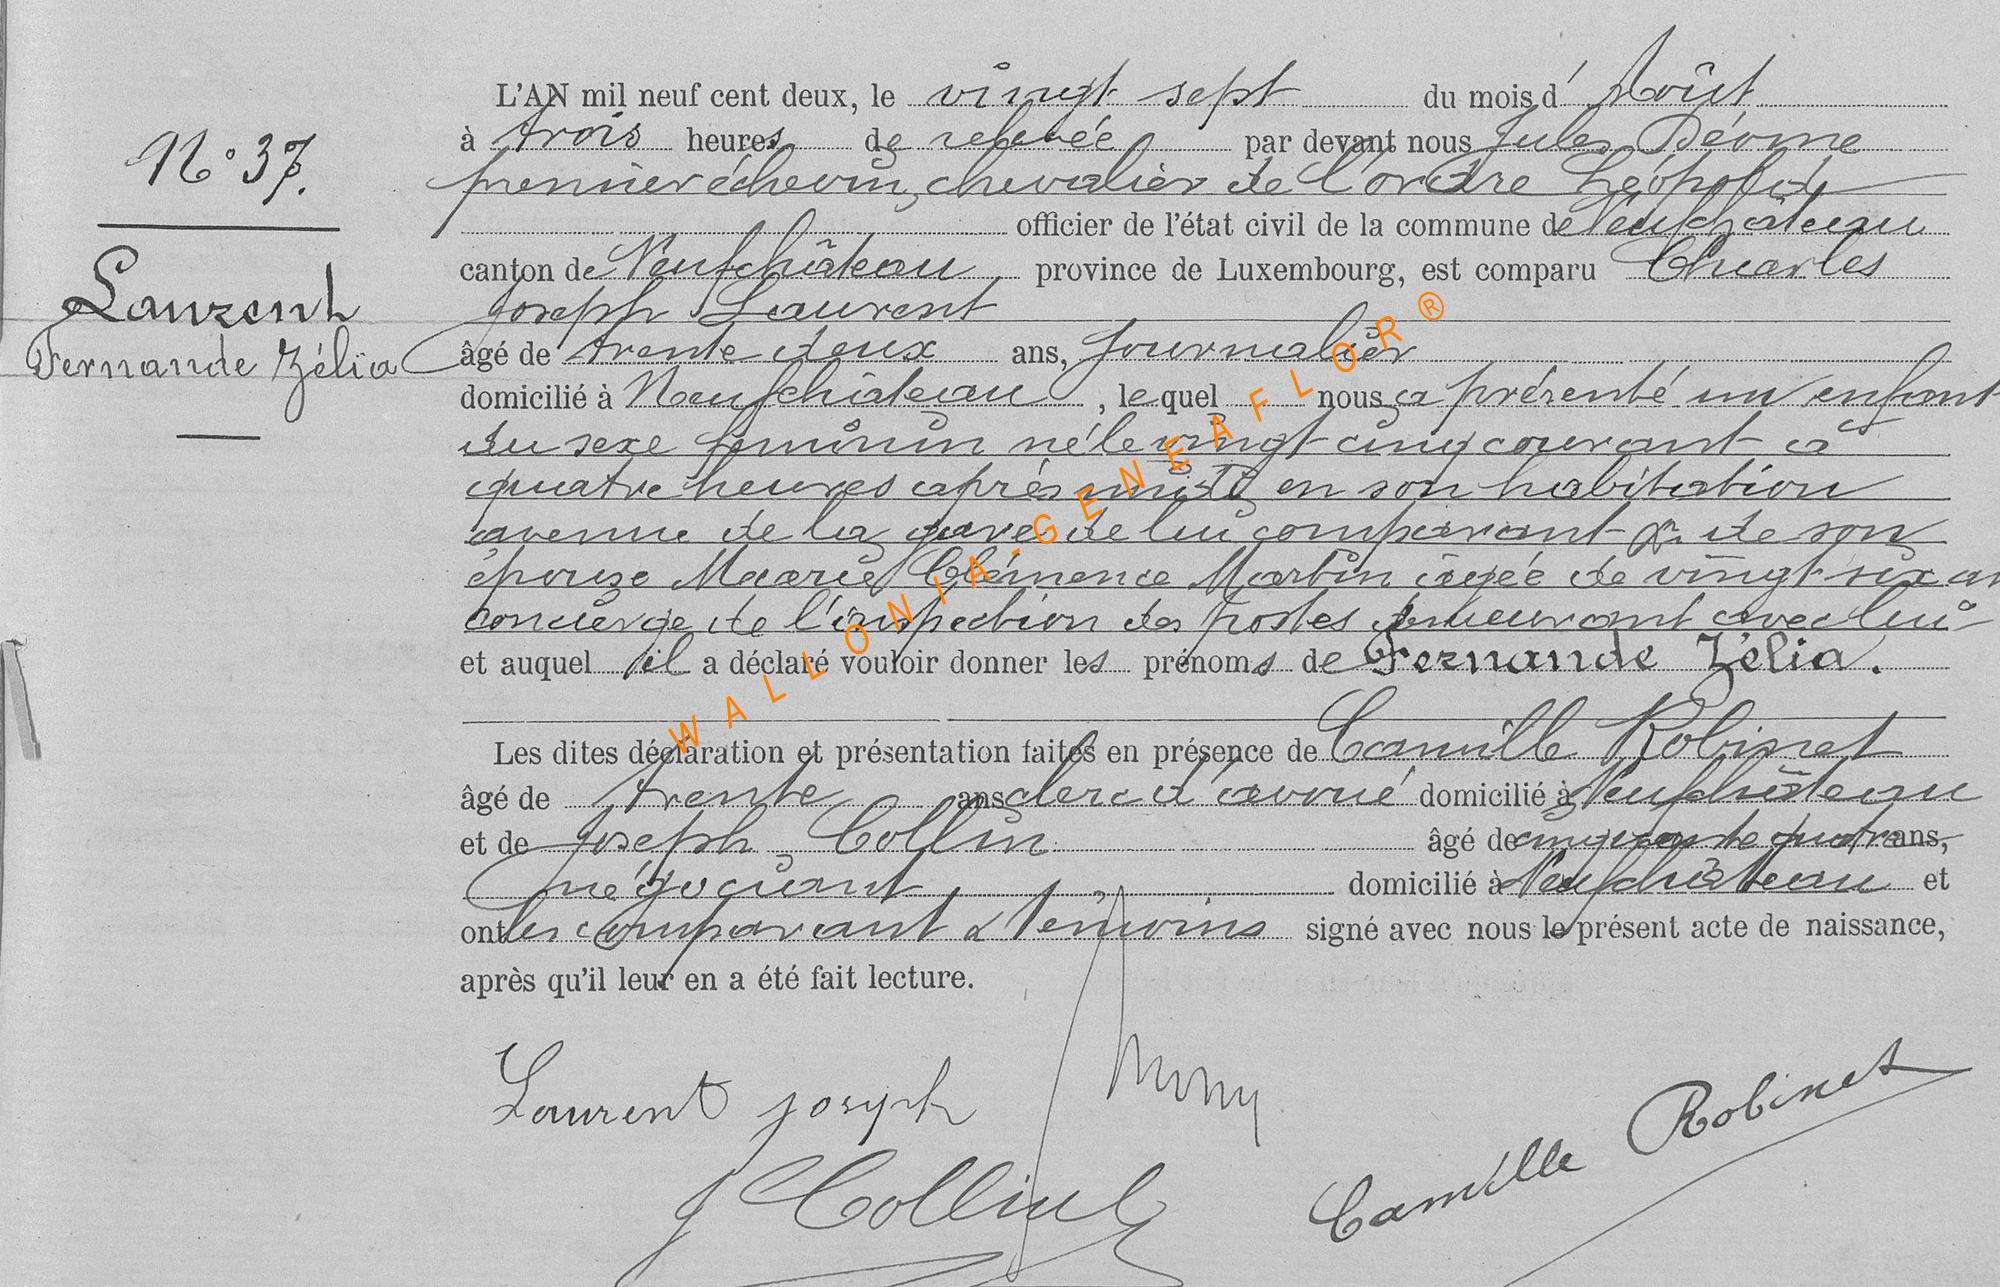 N° 37.
Laurent
Fernande Zélia
L'AN mil neuf cent deux, le vingt sept du mois d' Août
à trois heures de relevée par devant nous Jules Déome
premier échevin, chevalier de l'ordre Léopold
officier de l'état civil de la commune de Neufchâteau
canton de Neufchâteau province de Luxembourg, est comparu Charles
Joseph Laurent
âgé de trente deux ans, journalier
domicilié à Neufchâteau, lequel nous a présenté un enfant
du sexe féminin né le vingt cinq courant à
quatre heures après en son habitation
avenue de la gare de lui comparant & de son
épouse Marie Clémence Martin âgée de vingt six an
concierge de l'inspection des postes demeurant avec lui
et auquel il a déclaré vouloir donner les prénoms de Fernande Zélia.
Les dites déclaration et présentation faites en présence de Camille Robinet
âgé de trente ans clerc d'avoué domicilié à Neufchâteau
et de Joseph Collin âgé de cinquante quatre ans,
négociant domicilié à Neufchâteau et
ont les comparant & témoins signé avec nous le présent acte de naissance,
après qu'il leur en a été fait lecture.
Laurent joseph
J Collin
Camille Robinet
WALLONIA.GENEAFLOR®